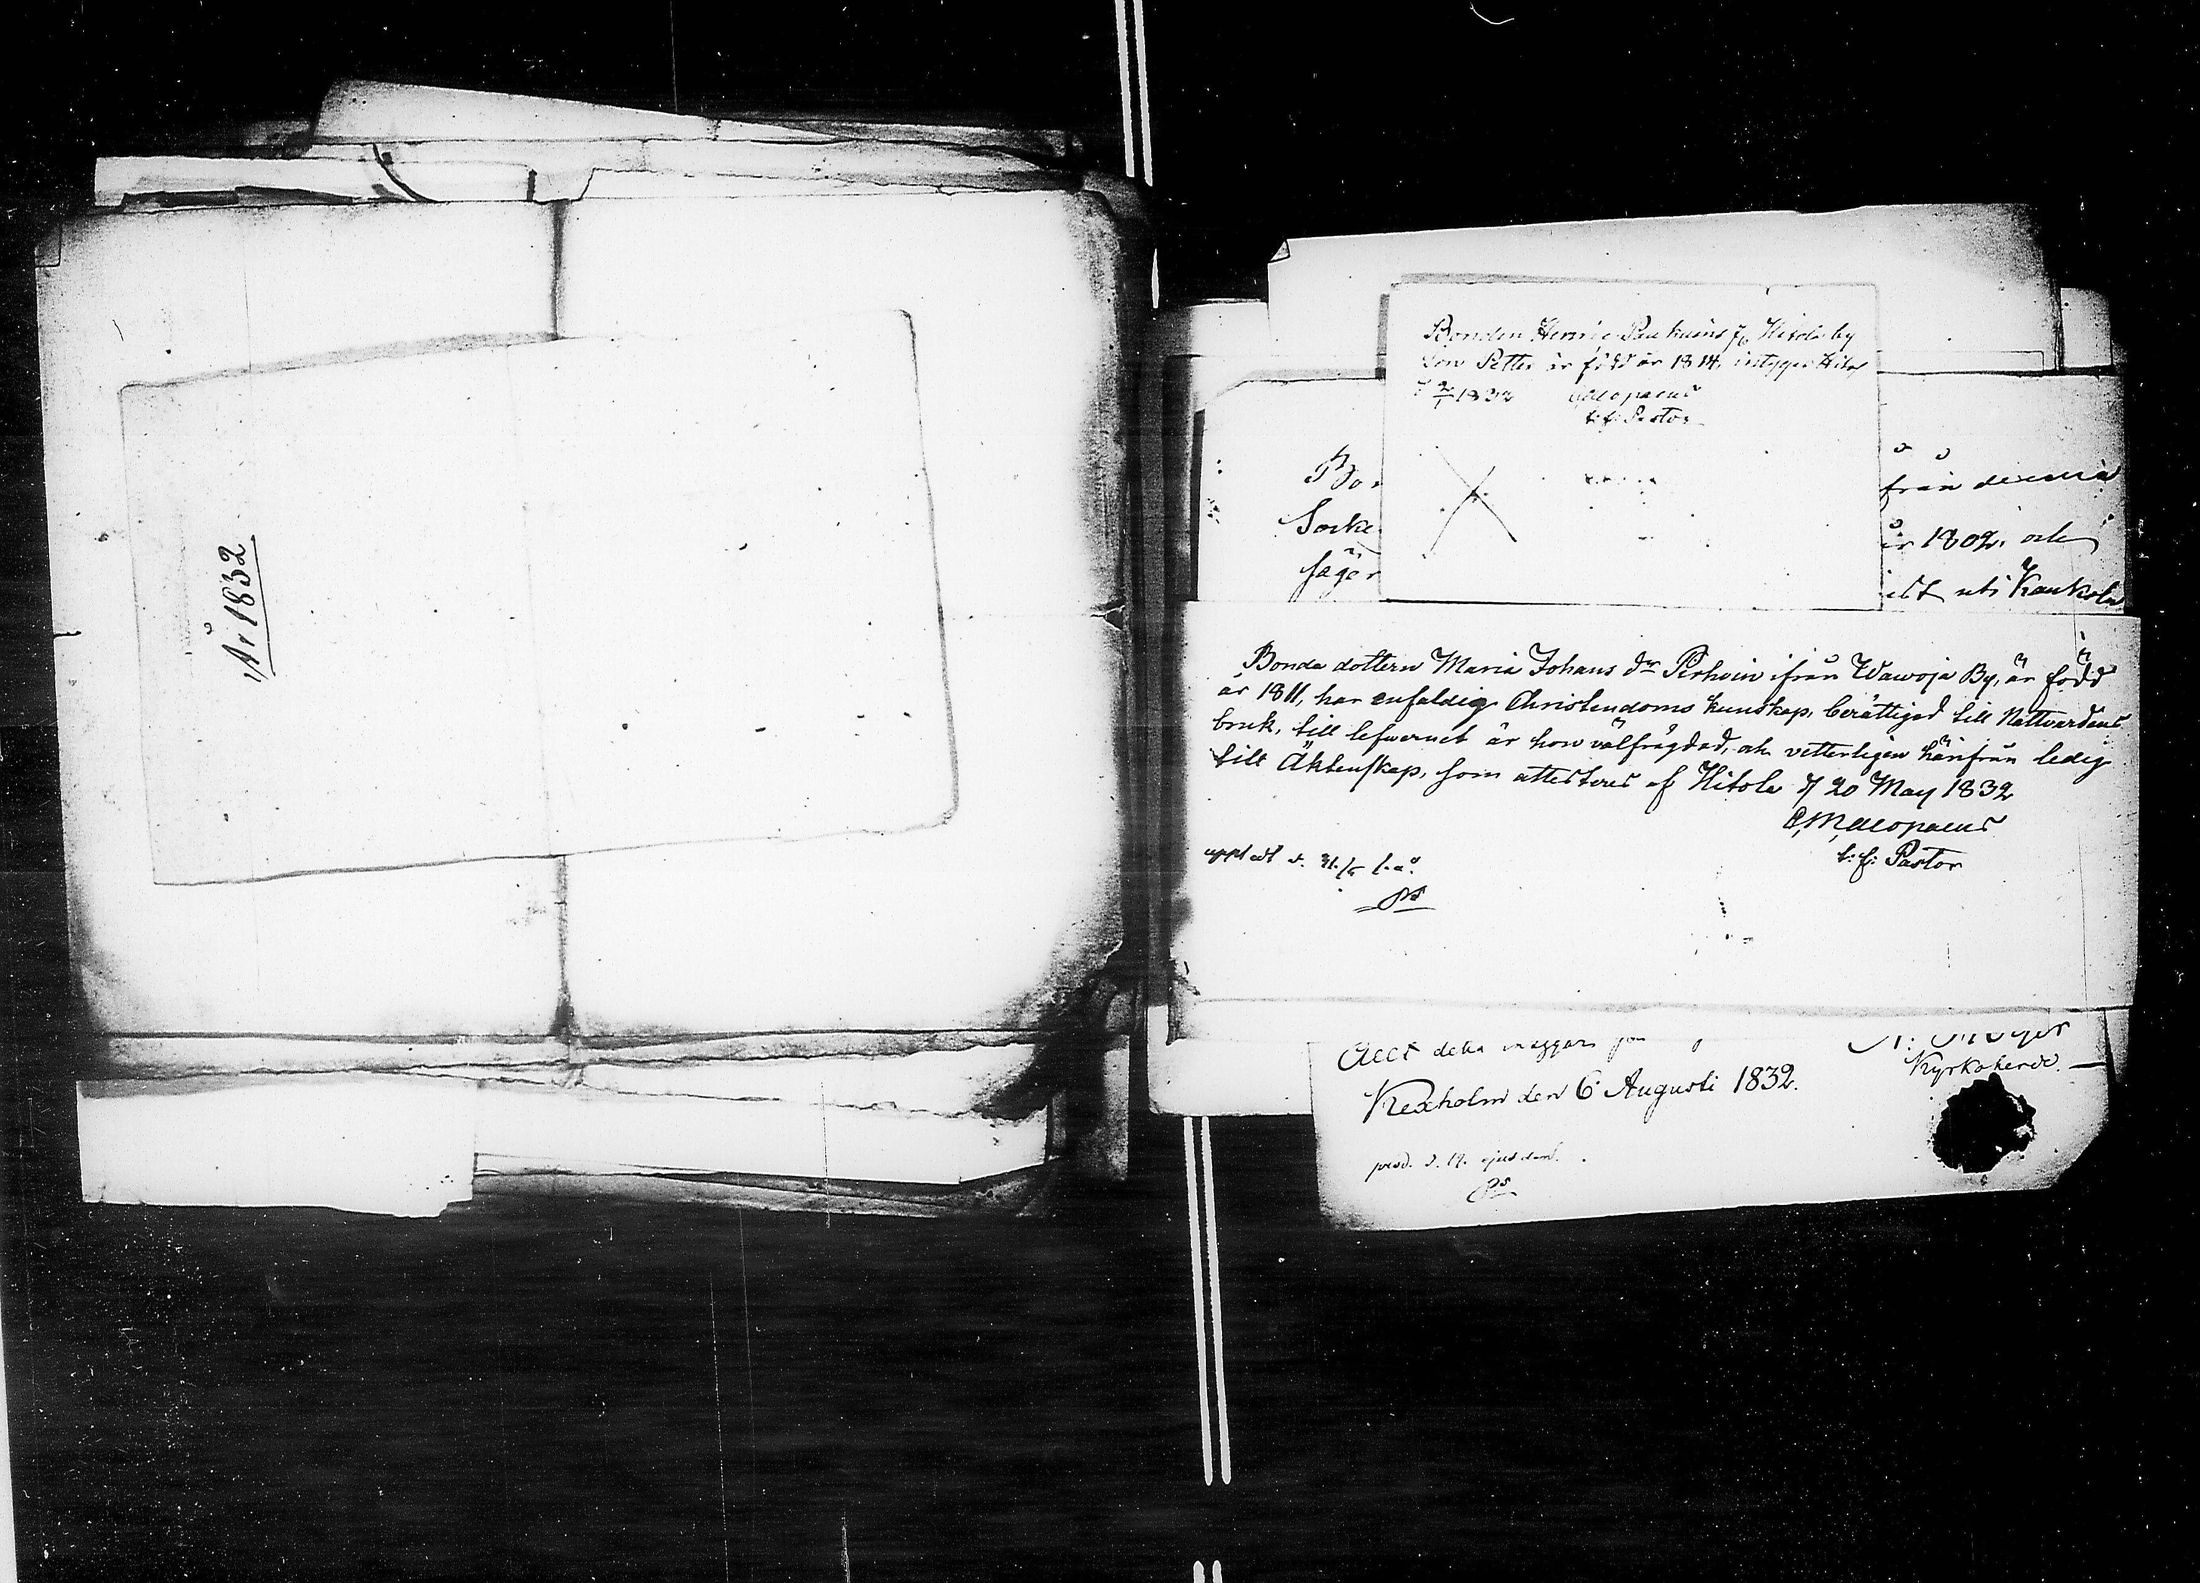 År 1832
Bonden Henric Paukuins fr Hitola by
Son Petter är född år 1814, intygar Hitol
d 2/1 1832 Alopaeus
t: f: Pastor
Bo
Socke
säger
från denna
år 1802, och
uti Kaukola
Bonda dottern Maria Johans dr Pirhoin ifrån Wawoja By, är född
år 1811, har enfaldig Christendoms kunskap, berättigad till Nattvardens
bruk, till lefwernet är hon välfrägdad, och vetterligen härifrån ledig
till Äktenskap, som attesteras af Hitola d 20 May 1832
Alopaeus
t: f: Pastor
uppl. d. 31/5 s. å.
Allt detta intygar
Kyrkoherde.
Kexholm den 6 Augusti 1832.
prod. d. 19. ejusdem.